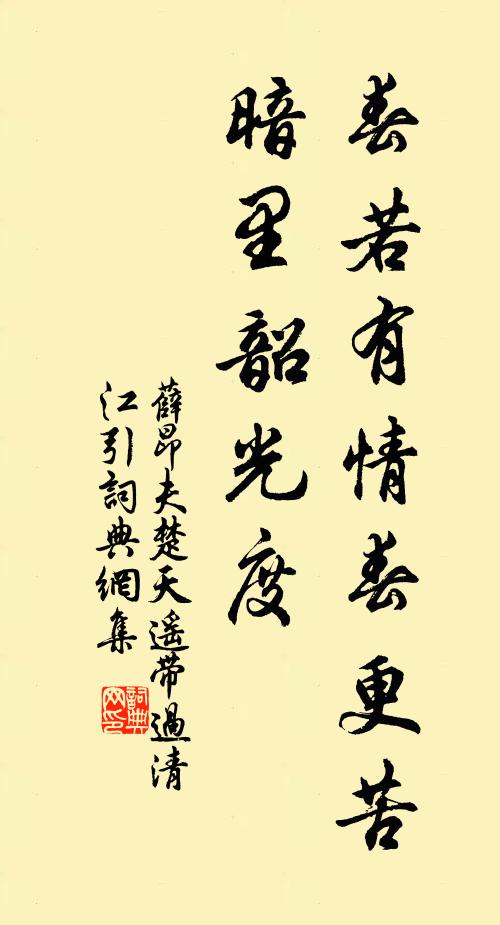 春若有情春更苦
暗里韶光度
薛昂夫楚天遥带過清
江引詞典網集
詞典
网印